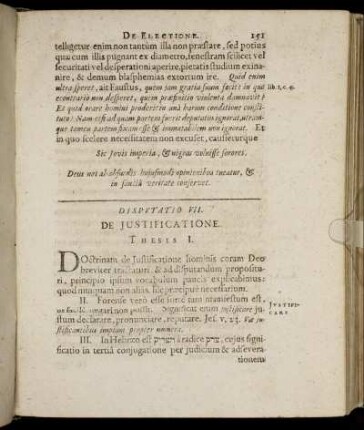 DE ELECTIONE. 151
telligetur enim non tantùm illa non præstare, sed potius
quæ cum illis pugnant ex diametro, fenestram scilicet vel
securitati vel desperationi aperire, pietatis studium exina-
nire, & demum blasphemias extorquere. Quid enim
ultra speret, ait Faustus, quem jam gratia suum fecit? in quo lib. 1, c. 4.
econtrario non desperet, quem præfinitio violenta damnavit?
Et quid orare homini proderit in una harum conditione constitu-
to? Nam etsi ad quam partem fuerit deputatus ignorat, utram-
que tamen partem fixam esse & immutabilem non ignorat. Et
in quo scelere necessitatem non excuset, causeturque
Sic Jovis imperia, & nigras voluisse sorores.
Deus nos ab absurdis hujusmodi opinionibus tueatur, &
in sancta veritate conservet.
DISPUTATIO VII.
DE JUSTIFICATIONE.
THESIS I.
DOctrinam de Justificatione hominis coram Deo
breviter tractaturi, & ad disputandum proposituri,
principio ipsum vocabulum paucis explicabimus:
quod nunquam non aliàs, hîc præcipuè necessarium.
II. Forense verò esse istud tam manifestum est, JUSTIFI-
ut negari non possit. Significat enim justificare ju- CARE.
stum declarare, pronunciare, reputare. Jes. v, 23. Væ ju-
stificantibus impium propter munera.
III. In Hebræo est הצדיק à radice צדק, cujus signi-
ficatio in tertiâ conjugatione per judicium & adsevera-
tionem